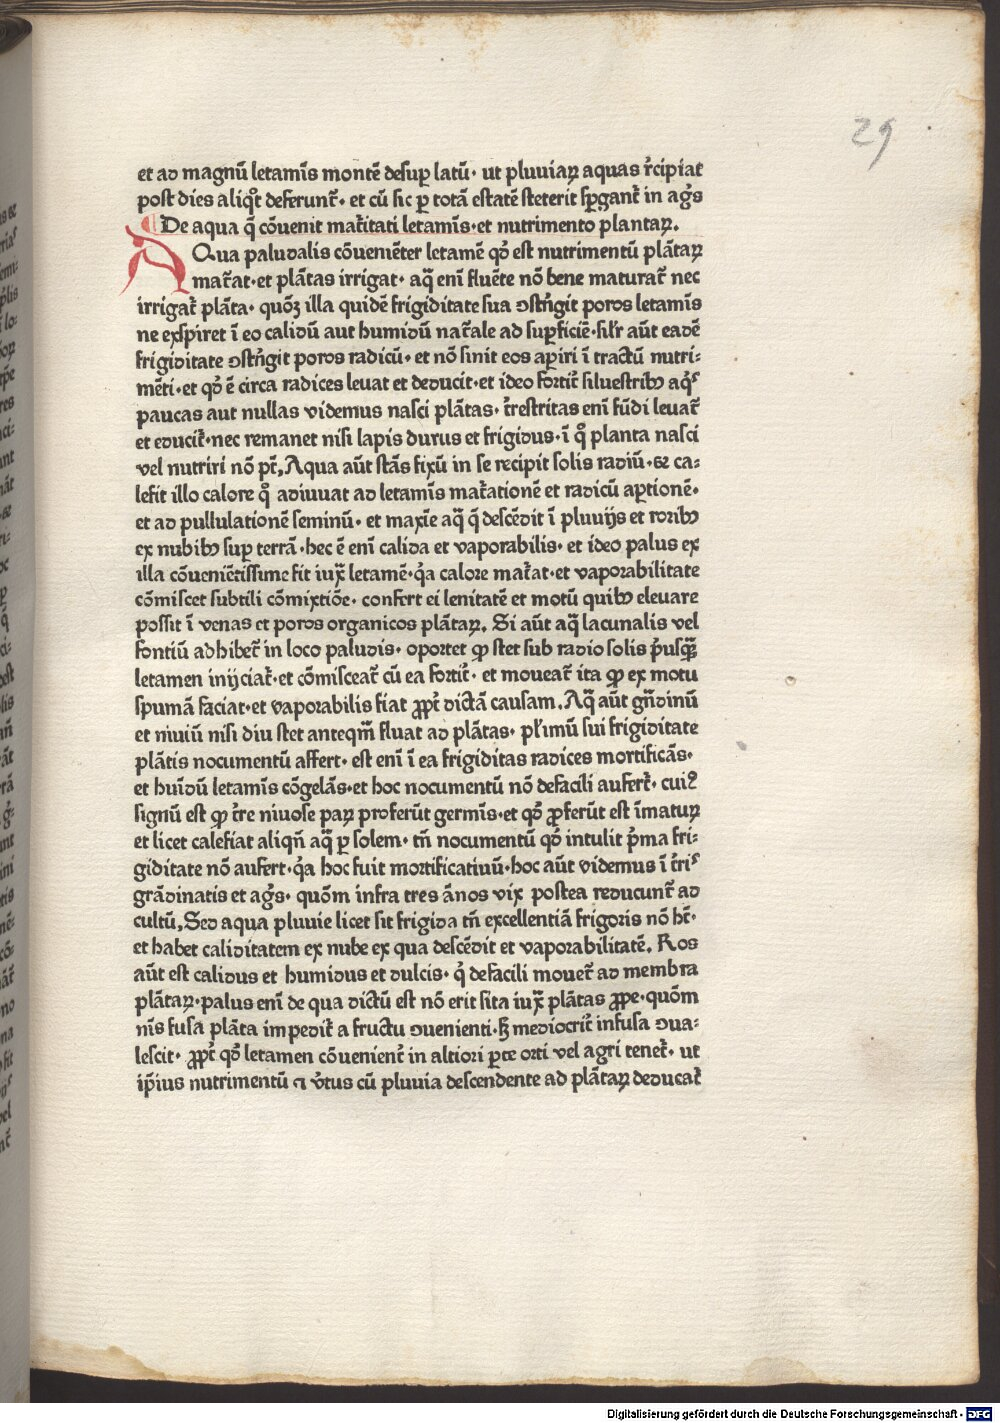 29
et ad magnū letamīs montē desuꝑ latū· ut pluviaꝝ aquas r̄cipiat
post dies aliqͦt deferunt̄· et cū sic ꝑ totā estatē steterit sꝑgant̄ in agͥs
¶ De aqua q̄ cōvenit mat̄itati letamīs·et nutrimento plantaꝝ.
AQua paludalis cōveniēter letamē qḋ est nutrimentū plātaꝝ
mat̄at·et plātas irrigat· aq̄ enī fluēte nō bene maturat̄ nec
irrigat̄ plāta· quōꝫ illa quidē frigiditate sua ↄstrīgit poros letamīs
ne exspiret ī eo calidū aut humidū nat̄ale ad suꝑficiē·sil'r aūt eadē
frigiditate ↄstrīgit poros radicū· et nō sinit eos aꝑiri ī tractū nutri:
mēti·et qḋ ē circa radices levat et deducit·et ideo fortit̄ silvestribꝰ aqͥs
paucas aut nullas videmus nasci plātas· t̄restritas enī fūdi levat̄
et educit̄·nec remanet nisi lapis durus et frigidus·ī qͦ planta nasci
vel nutriri nō pt̄, Aqua aūt stās fixū in se recipit solis radiū· et ca:
lefit illo calore qͦ adiuvat ad letamīs mat̄ationē et radicū aꝑtionē·
et ad pullulationē seminū· et maxīe aq̄ q̄ descēdit ī pluvijs et roribꝰ
ex nubibꝰ suꝑ terrā·hec ē enī calida et vaporabilis· et ideo palus ex
illa cōveniētissime fit iuxͣ letamē·qͥa calore mat̄at·et vaporabilitate
cōmiscet subtili cōmixtiōe· confert ei lenitatē et motū quibꝰ elevare
possit ī venas et poros organicos plātaꝝ. Si aūt aq̄ lacunalis vel
fontiū adhibet̄ in loco paludis· oportet ꝙ stet sub radio solis pͥusqͣꝫ
letamen inijciat̄·et cōmisceat̄ cū ea fortit̄· et moveat̄ ita ꝙ ex motu
spumā faciat·et vaporabilis fiat ꝓpt̄ dictā causam. Aq̄ aūt gn̄dinū
et niviū nisi diu stet anteqͫ fluat ad plātas· pl'imū sui frigiditate
plātis nocumentū affert· est enī ī ea frigiditas radices mortificās·
et hūidū letamīs cōgelās·et hoc nocumentū nō defacili aufert̄· cuiꝰ
signū est ꝙ t̄re nivose paꝝ proferūt germīs·et qḋ ꝓferūt est īmatuꝝ
et licet calefiat aliqn̄ aq̄ ꝑ solem· tn̄ nocumentū qḋ intulit pͥma fri:
giditate nō aufert·qͥa hoc fuit mortificativū·hoc aūt videmus ī t̄riͥs
grādinatis et agͥs· quōm infra tres ānos vix postea reducunt̄ ad
cultū, Sed aqua pluvie licet sit frigida tn̄ excellentiā frigoris nō ht̄·
et habet caliditatem ex nube ex qua descēdit et vaporabilitatē. Ros
aūt est calidus et humidus et dulcis· qͥ defacili movet̄ ad membra
plātaꝝ·palus enī de qua dictū est nō erit sita iuxͣ plātas ꝓpe·quōm
nīs fusa plāta impedit̄ a fructu ↄvenienti·sꝫ mediocrit̄ infusa ↄva:
lescit· ꝓpt̄ qḋ letamen cōvenient̄ in altiori ꝑte orti vel agri tenet̄· ut
ip̄ius nutrimentū ⁊ v̄tus cū pluvia descendente ad plātaꝝ deducat̄
Digitalisierung gefördert durch die Deutsche Forschungsgemeinschaft - DFG